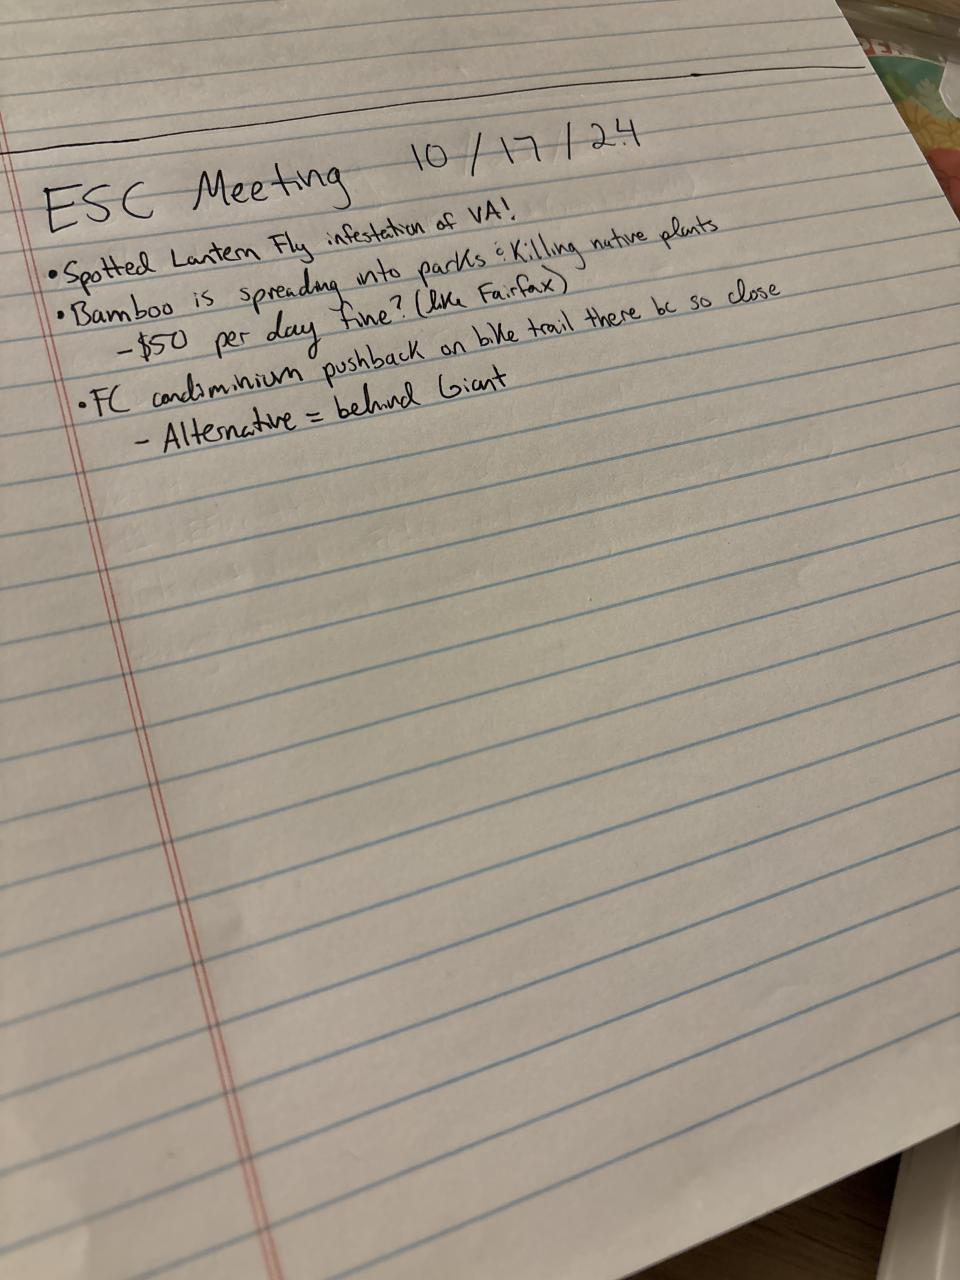 ESC Meeting 10/17/24
• Spotted Lantern Fly infestation of VA!
• Bamboo is spreading into parks & Killing native plants
- $50 per day fine? (like Fairfax)
• FC condiminium pushback on bike trail there bc so close
- Alternative = behind Giant